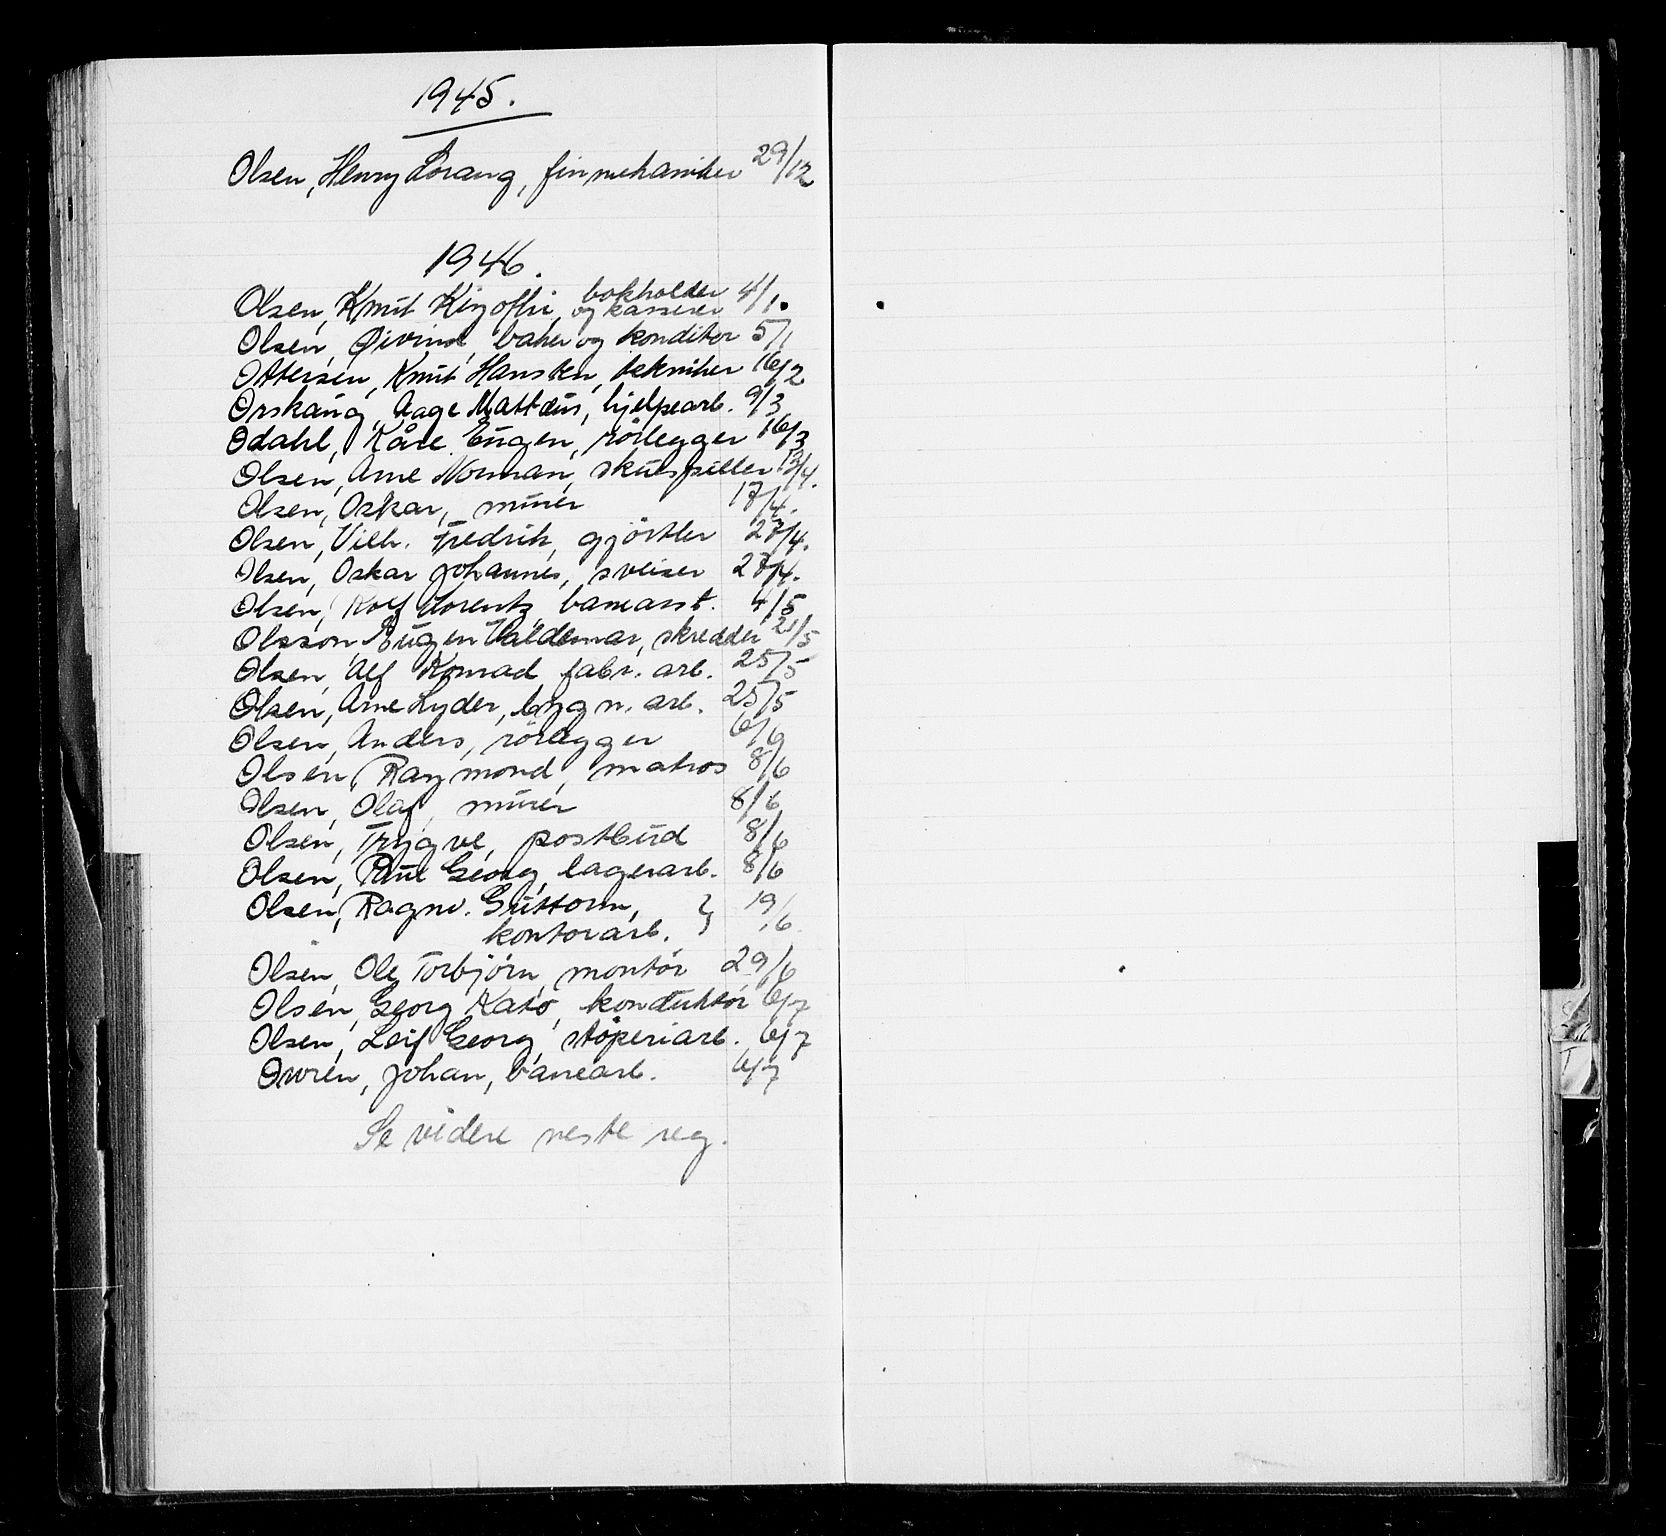 1945.
Olsen, Henry Lorang, finmekaniker 29/12
1946.
Olsen, Knut bokholder 4/1.
og kasserer
Olsen, Øivind, baker og konditor 5/1
Ottersen, Knut Hansten, tekniker 16/2
Orskaug, Aage Mattæus, hjelpearb. 9/3
Odahl, Kåre Eugen, rörlegger 16/3
Olsen, Arne Norman, skuespiller 13/4.
Olsen, Oskar, murer 17/4.
Olsen, Vilh. Fredrik, gjörtler 27/4.
Olsen, Oskar Johannes, sveiser 27/4.
Olsen, Rolf Lorentz, baneasst. 4/5
Olsson, Eugen Valdemar, skredder 21/5
Olsen, Alf Konrad, fabr. arb. 25/5
Olsen, Arne Lyder, bygn. arb. 25/5
Olsen, Anders, rörlegger 6/6
Olsen, Raymond, matros 8/6
Olsen, Olaf, murer 8/6
Olsen, Trygve, postbud 8/6
Olsen, Paul Georg, lagerarb. 8/6
Olsen, Ragnv. Guttorm, } 19/6
kontorarb.
Olsen, Ole Torbjörn, montör 29/6
Olsen, Georg Kato, konduktör 6/7
Olsen, Leif Georg, stöperiarb. 6/7
Owren, Johan, banearb. 6/7
Se videre neste reg.